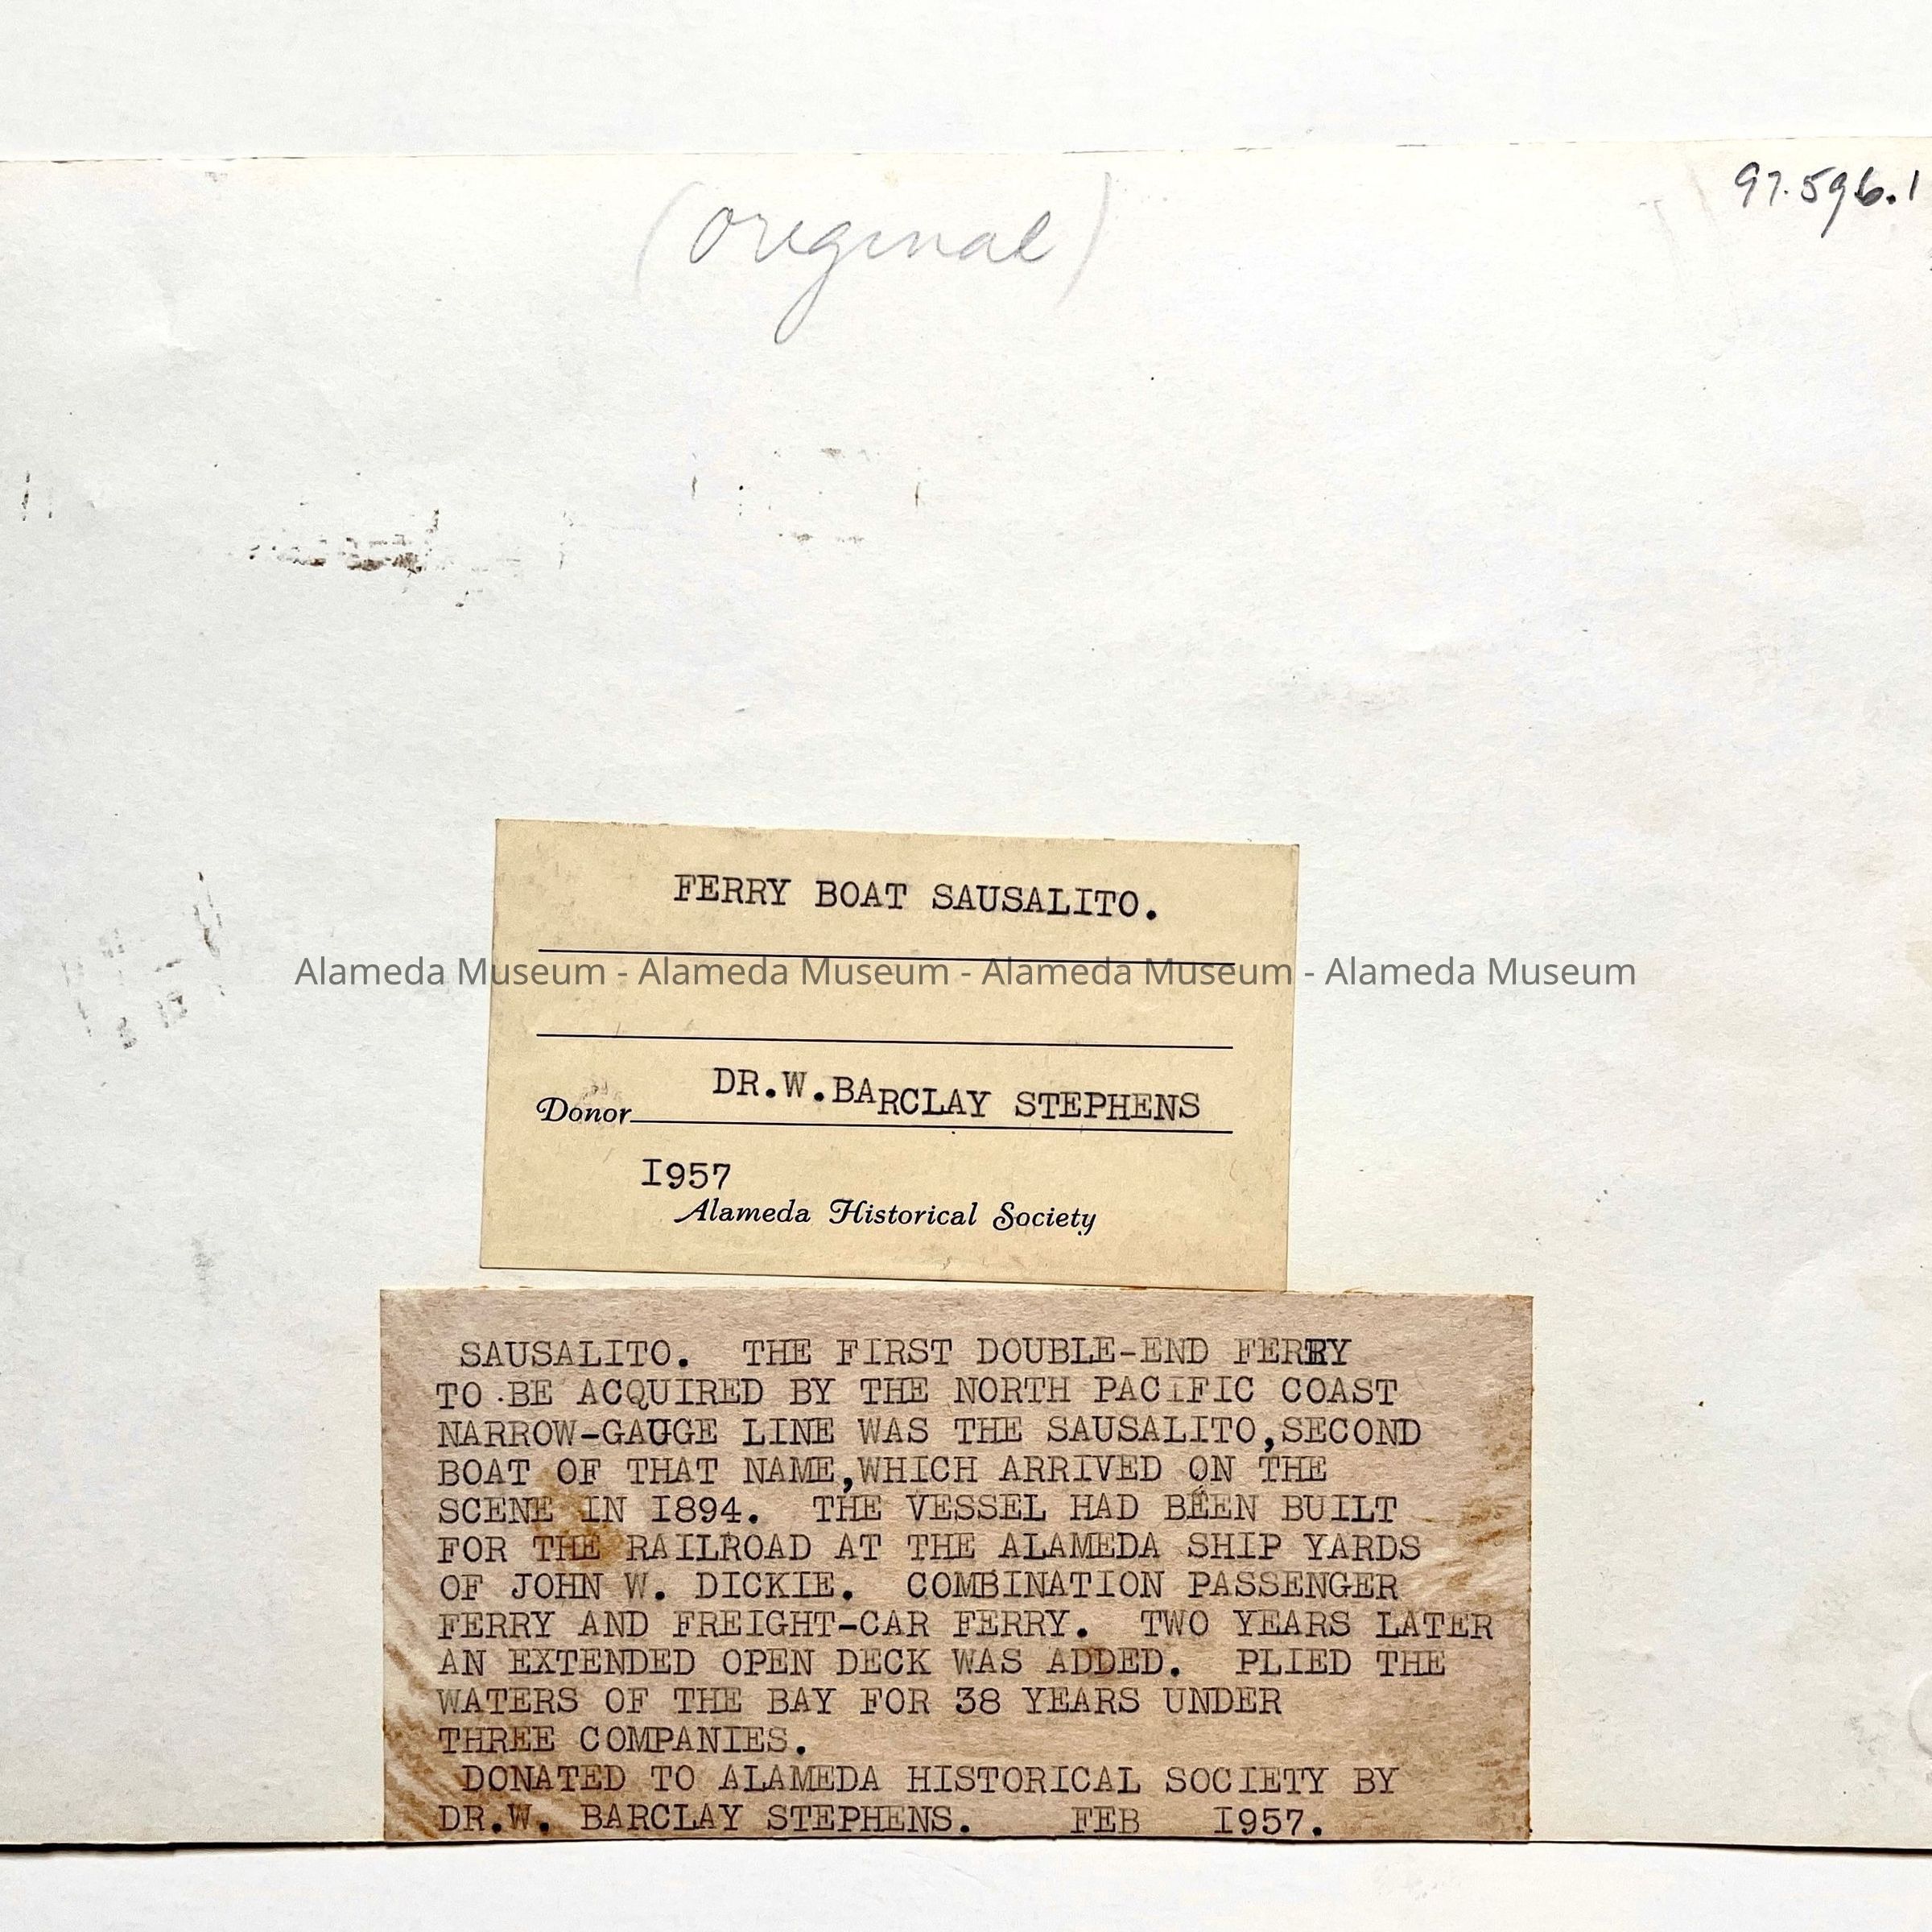 97.596.1
(original)
FERRY BOAT SAUSALITO.
Alameda Museum - Alameda Museum - Alameda Museum - Alameda Museum
Donor DR.W.BARCLAY STEPHENS
I957
Alameda Historical Society
SAUSALITO. THE FIRST DOUBLE-END FERRY
TO BE ACQUIRED BY THE NORTH PACIFIC COAST
NARROW-GAUGE LINE WAS THE SAUSALITO,SECOND
BOAT OF THAT NAME,WHICH ARRIVED ON THE
SCENE IN I894. THE VESSEL HAD BEEN BUILT
FOR THE RAILROAD AT THE ALAMEDA SHIP YARDS
OF JOHN W. DICKIE. COMBINATION PASSENGER
FERRY AND FREIGHT-CAR FERRY. TWO YEARS LATER
AN EXTENDED OPEN DECK WAS ADDED. PLIED THE
WATERS OF THE BAY FOR 38 YEARS UNDER
THREE COMPANIES.
DONATED TO ALAMEDA HISTORICAL SOCIETY BY
DR.W. BARCLAY STEPHENS. FEB I957.